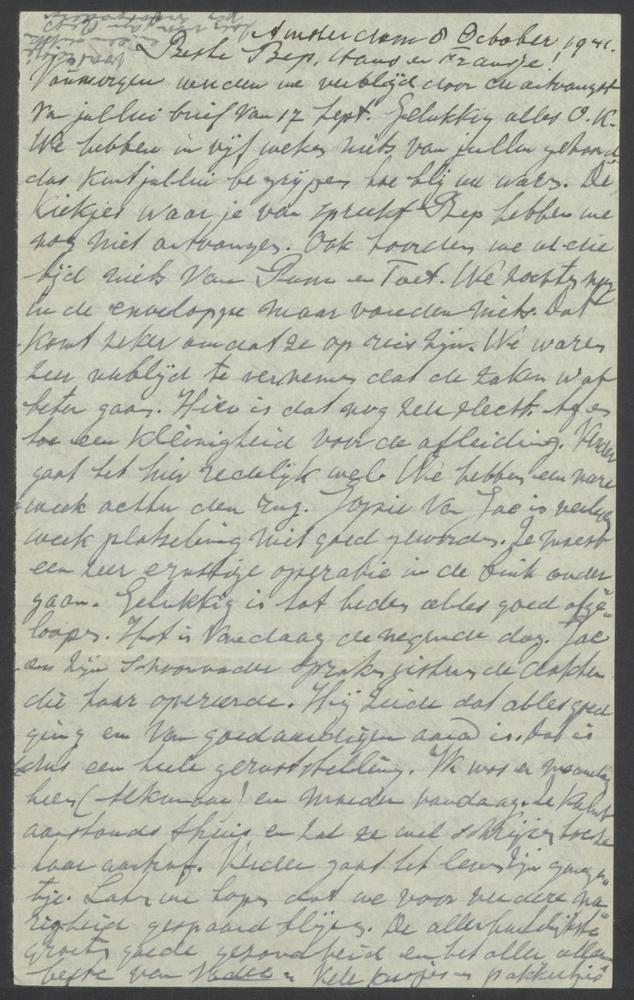 Amsterdam 8 October 1941.
Beste Bep, Hans en Fransje!
Vanmorgen werden we verblijd door de ontvangst
van jullie brief van 17 Sept. Gelukkig alles O.K.
We hebben in vijf weken niets van jullie gehoord
dus kunt jullie begrijpen hoe blij we waren. De
Kiekjes waar je van spreekt Bep hebben we
nog niet ontvangen. Ook hoorden we al die
tijd niets van en Toet. We zochten nog
in de enveloppe maar vonden niets. Dat
komt zeker omdat ze op reis zijn. We waren
zeer verblijd te vernemen dat de zaken wat
beter gaan. Hier is dat nog zeer slecht. Af en
toe een kleinigheid voor de afleiding. Verder
gaat het hier redelijk wel. We hebben een nare
week achter den rug. Jopie van Jac is verleden
week plotseling niet goed geworden. Ze moest
een zeer ernstige operatie in de buik onder
gaan. Gelukkig is tot heden alles goed afge-
loopen. Het is Vandaag de negende dag. Jac
en zijn Schoonvader spraken gisteren de dokter
die haar opereerde. Hij zeide dat alles goed
ging en van goedaardigen aard is. Dat is
dus een heele geruststelling. Ik was er maandag
heen en moeder vandaag. Ze komt
aanstonds thuis en zal ze wel schrijven hoe ze
haar aantrof. Verder gaat het leven zijn gange-
tje. Laten we hopen dat we voor verdere na
righeid gespaard blijven. De allerhartelijkste
groeten goede gezondheid en het aller aller
beste van Vader. Vele pakkerds